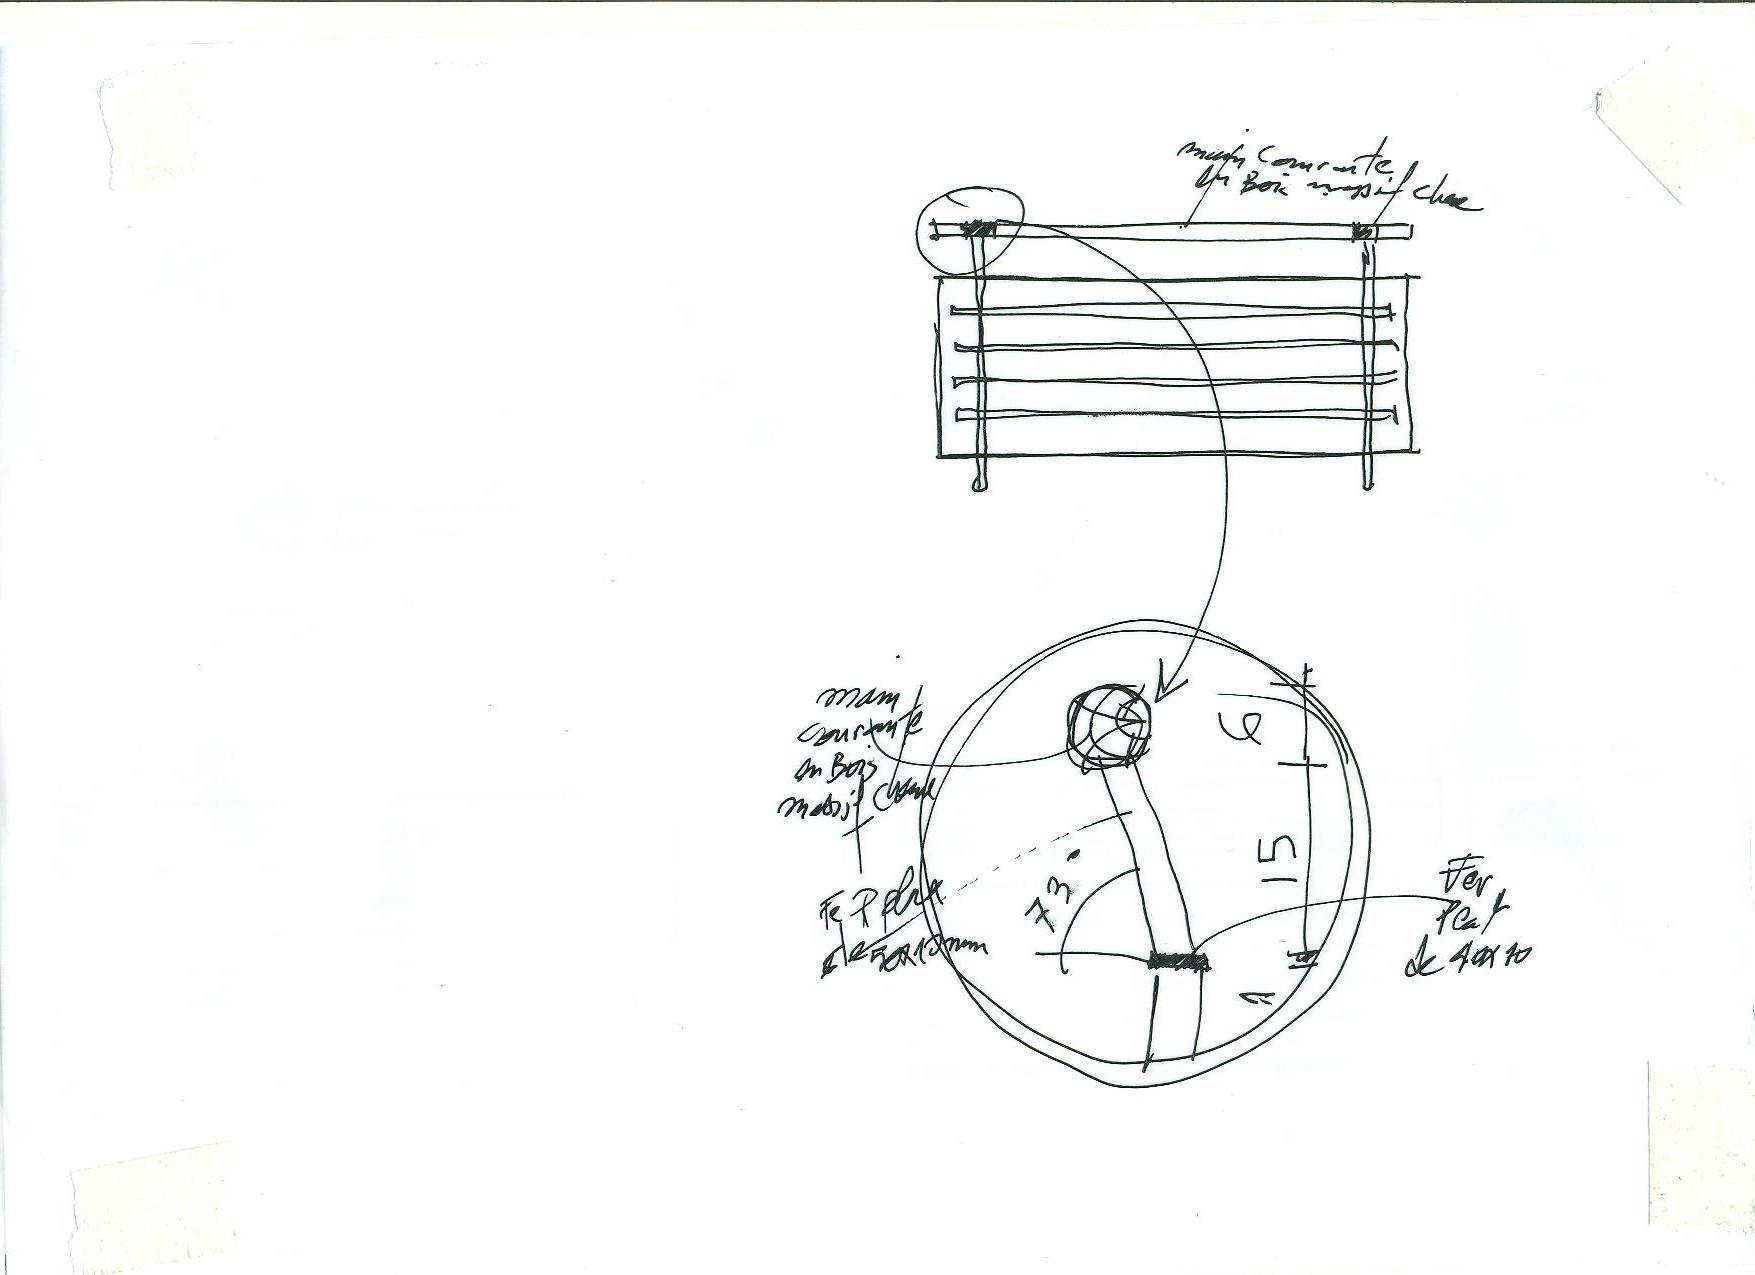 main courante
en Bois massif chene
main
courante
en Bois
massif chene
6
15
73°
Fer plat
de 50x10mm
Fer
plat
de 40x10